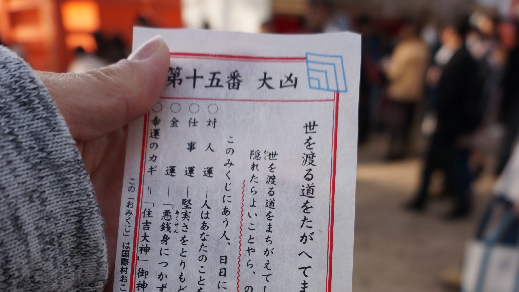 第十五番 大凶
世を渡る道をたがへてま
世を渡る道をまちがえてし
隠れたらよいことやら、の
このみくじにあう人、日日に
○対人運―人はあなたのことを
○仕事運―堅実さをとりもど
○金運―「悪銭身につかず
○幸運のカギ=「住吉大神」御神
この「おみくじ」は国際村おこ